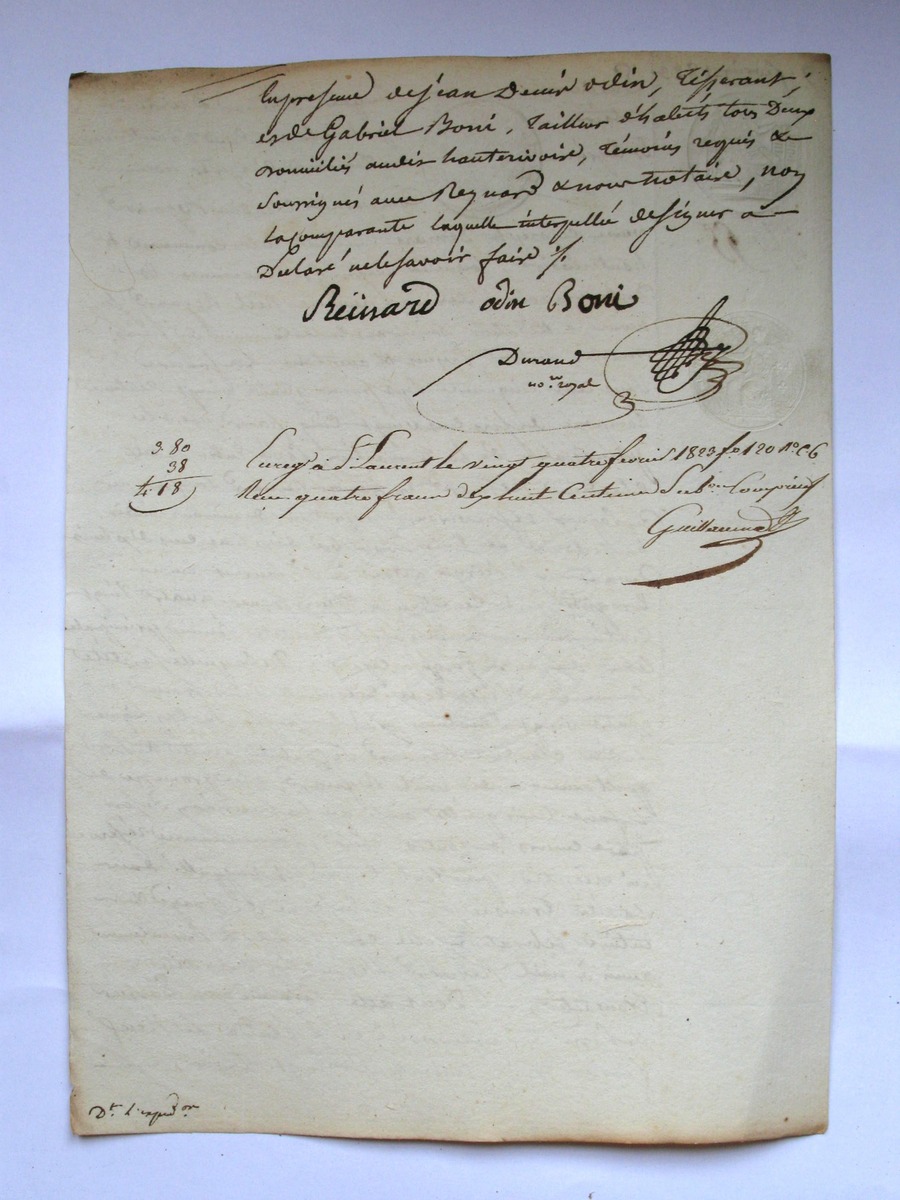 En presence de Jean Denis odin, Tisserant,
et de Gabriel Boni, Tailleur d'habits tous Deux
Domiciliés audit hauterivoire, Témoins requis &
Soussignés avec Reynard & nous notaire, non
la comparante laquelle interpellée de signer a
Déclaré ne le savoir faire ./.
Reïnard odin Boni
Durand
no.re royal
3. 80
38
4. 18
Enreg. à St. Laurent le vingt quatre fevrier 1823 f.o 120
Recu quatre francs dix huit Centimes Sub.on Comprise
Guillaume
Dt. l'exped.on